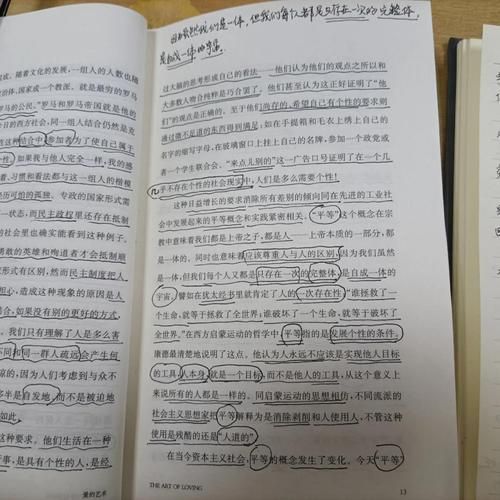 因为虽然我们是一体，但我们每个人都是只存在一次的完整体，
是自成一体的宇宙。
成。随着文化的发展，一组人的人数也随
治体、国家成一个教派。就是最穷的罗马
罗马的公民。”罗马和罗马帝国就是他的
今日的西方社会，同一组人结合仍然是克
在这种结合中，参加者为了使自己属于
性。如果我与他人完全一样，我的感
着、习惯和看法都与这一组人的楷模
经历可怕的孤独。专政的国家形式需
一状态，而民主政权里还存在抵制
的社会里也确实能看到这种例子。
勇敢的英雄和殉道者才会抵制顺
家形式有区别，然而民主制度把人
担心。造成这种现象的原因是人
结合，如果没有别的更好的方式，
。我们只有理解了人是多么害
不同和同一群人疏远会产生何
惧的。因为人们考虑到与众不
多半是自发地，而不是被迫地
如此。
这种要求。他们生活在一种
行事，是具有个性的人，是经
爱的艺术
过大脑的思考形成自己的看法——他们认为他们的观点之所以和
大多数人吻合纯粹是巧合罢了。他们甚至认为这正好证明了“他
们”的观点是正确的。至于他们尚存的、希望自己有个性的要求则
通过微不足道的东西得到满足：如在手提箱和毛衣上绣上自己的
名字的缩写字母，在玻璃窗口上挂上自己的名牌，参加一个政党或
者一个学生联合会。“来点儿别的”这一广告口号证明了在一个几
乎不存在个性的社会现实中，人们是多么需要个性！
这种日益增长的要求消除所有差别的倾向同在先进的工业社
会中发展起来的平等概念和实践紧密相关。“平等”这个概念在宗
教中意味着我们都是上帝之子，都是人——上帝本质的一部分，都
是一体的。同时也意味着应该尊重人与人的区别，因为我们虽然
是一体，但我们每个人又都是只存在一次的完整体，是自成一体的
宇宙。譬如在犹太经书里就肯定了人的一次存在性：“谁拯救了一
个生命，就等于拯救了全世界；谁破坏了一个生命，就等于破坏了
全世界。”在西方启蒙运动的哲学中，平等指的是发展个性的条件。
康德最清楚地说明了这点。他认为人永远不应该是实现他人目标
的工具，人本身就是一个目标，而不是他人的工具，从这个意义上
来说所有的人都是一样的。同启蒙运动的思想相仿，不同流派的
社会主义思想家把平等解释为是消除剥削和人使用人，不管这种
使用是残酷的还是“人道的”。
在当今资本主义社会，平等的概念发生了变化。今天“平等”
THE ART OF LOVING
13